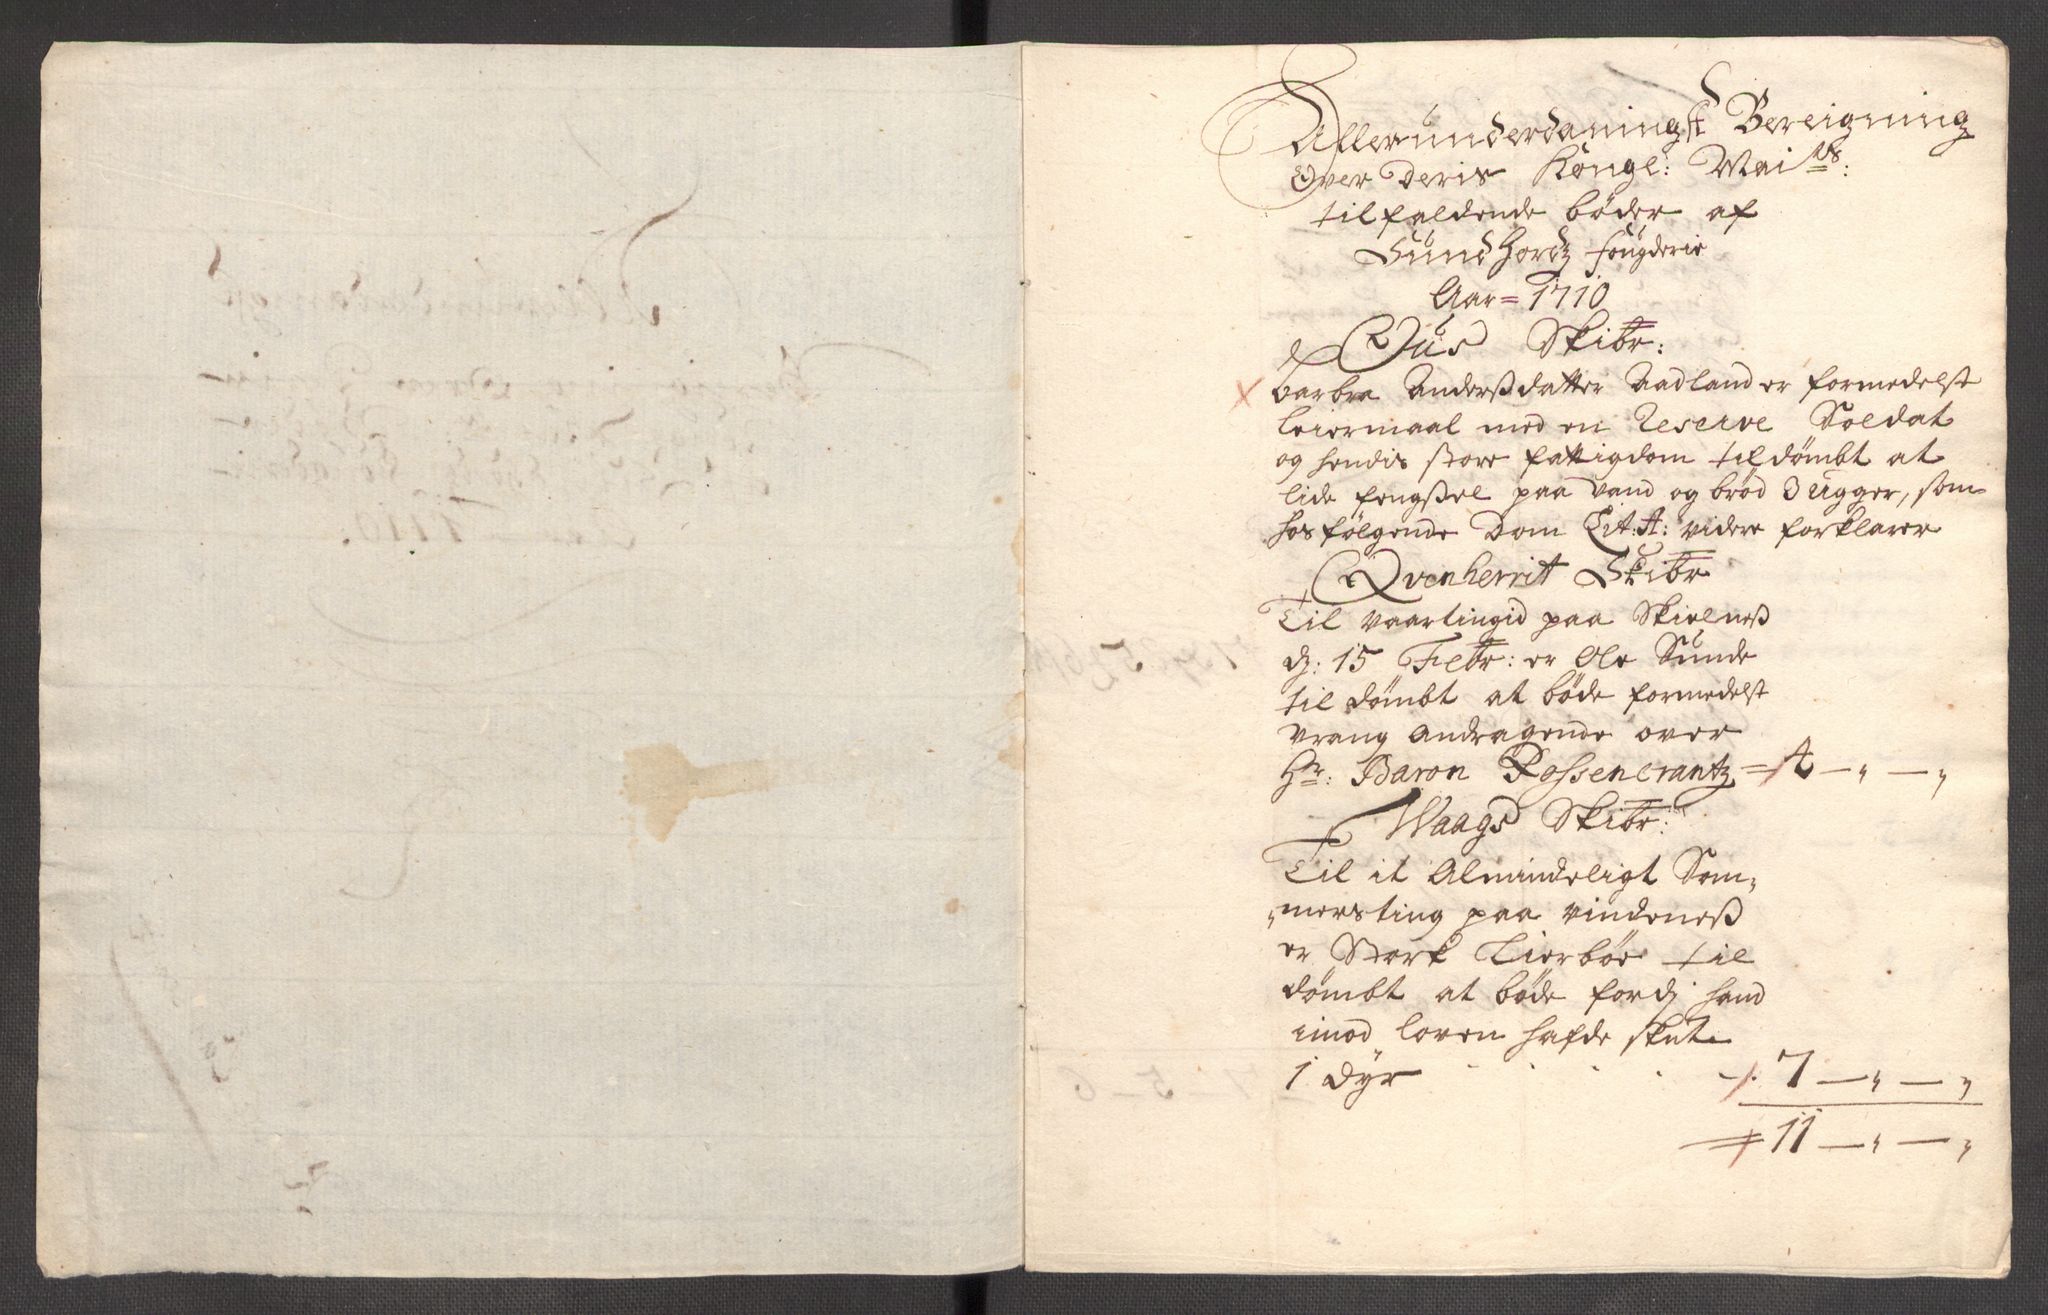 Allerunderdaningst Bereigning
Over Deris Kongl: Mai^ts:
tilfaldende bøder af
Sundhordz fougderie
Aar = 1710
Ous Skibr:
barbra Anderßdatter Aadland er formedelst
leiermaal med en Reserve Soldat
og hendis store fattigdom tildømbt at
lide fengßel paa vand og brød 3 ugger, som
hosfølgende Dom Lit: A: videre forklarer
Qvenherrit Skibr
Til vaartingid paa Skielneß
d: 15 Febr: er Ole Sunde
til dømbt at bøde formedelst
vrang andragende over
Hr: Baron Rossencrantz = 4 — „ — „
Waags Skibr:
Til it Almindeligt Som„
„mersting paa vindeneß
er Stork Lierbøe til
dømbt at bøde fordj hand
imod loven hafde skut
1 dyr . . . . - 7 — „ — „
11 — „ — „